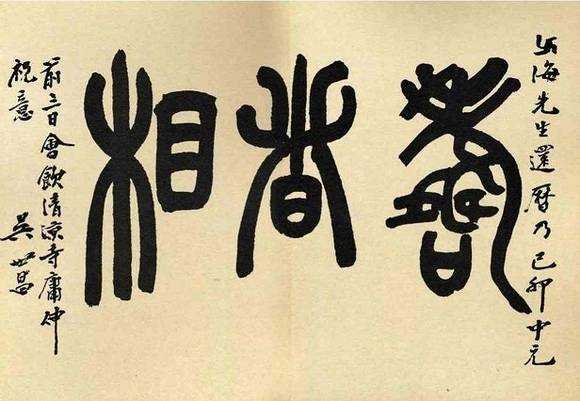 海先生還曆乃己卯中元
壽者相
前三日會飲清凉寺庸伸
祝意 吳世昌